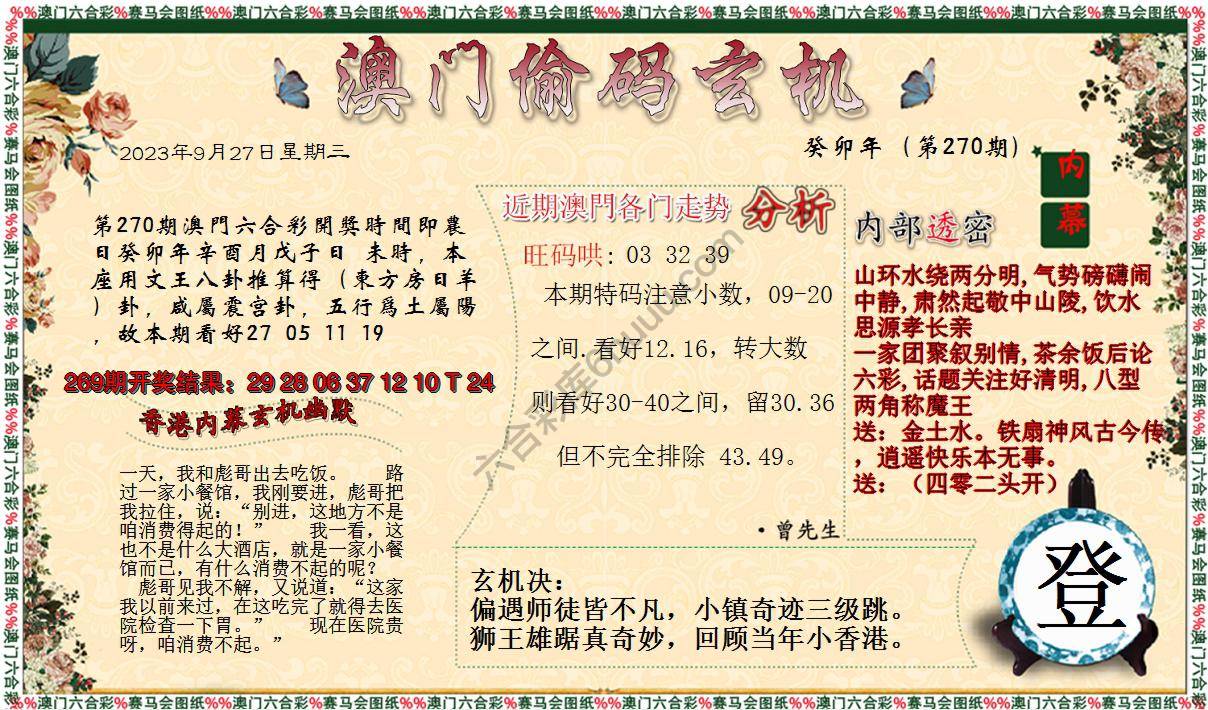 %%澳门六合彩%赛马会图纸%%澳门六合彩%赛马会图纸%%澳门六合彩%赛马会图纸%%澳门六合彩%赛马会图纸%%澳门六合彩%赛马会图纸%%澳门六合彩%赛马会图纸
澳门偷码玄机
2023年9月27日星期三
癸卯年（第270期）
内
幕
第270期澳門六合彩開獎時間即農
日癸卯年辛酉月戊子日 未時，本
座用文王八卦推算得（東方房日羊
）卦，咸屬震宫卦，五行爲土屬陽
，故本期看好27 05 11 19
269期开奖结果：29 28 06 37 12 10 T 24
香港内幕玄机幽默
一天，我和彪哥出去吃饭。 路
过一家小餐馆，我刚要进，彪哥把
我拉住，说：“别进，这地方不是
咱消费得起的！” 我一看，这
也不是什么大酒店，就是一家小餐
馆而已，有什么消费不起的呢？
彪哥见我不解，又说道：“这家
我以前来过，在这吃完了就得去医
院检查一下胃。” 现在医院贵
呀，咱消费不起。”
近期澳門各门走势 分析
旺码哄: 03 32 39
本期特码注意小数，09-20
之间.看好12.16，转大数
则看好30-40之间，留30.36
但不完全排除 43.49。
·曾先生
玄机决：
偏遇师徒皆不凡，小镇奇迹三级跳。
狮王雄踞真奇妙，回顾当年小香港。
内部透密
山环水绕两分明,气势磅礴闹
中静,肃然起敬中山陵,饮水
思源孝长亲
一家团聚叙别情,茶余饭后论
六彩,话题关注好清明,八型
两角称魔王
送：金土水。铁扇神风古今传
，逍遥快乐本无事。
送：（四零二头开）
登
%%澳门六合彩%赛马会图纸%%澳门六合彩%赛马会图纸%%澳门六合彩%赛马会图纸%%澳门六合彩%赛马会图纸%%澳门六合彩%赛马会图纸%%澳门六合彩%赛马会图纸